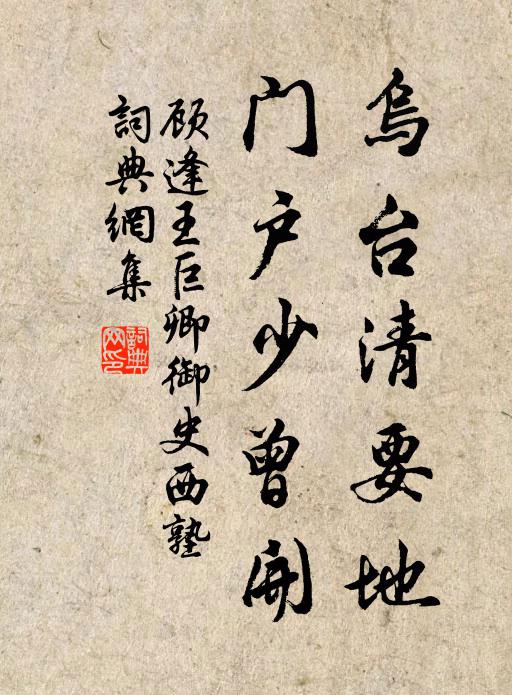 烏台清要地
门户少曾開
顾逢王巨卿御史西塾
詞典網集
詞典网印